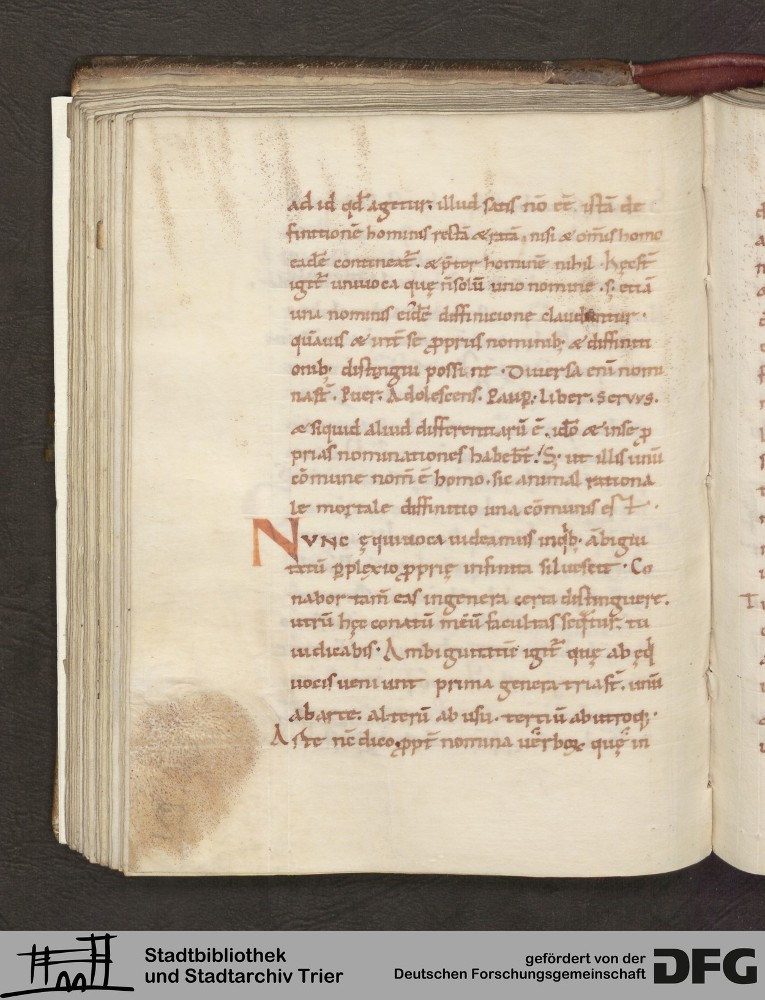 ad id qd̄ agetur. illud satis nō ē. istā de
finitionē hominis rectā & ratā, nisi & om̄is homo
eadē contineat̄. & p̄ter hominē nihil. hęc st̄
igit̄ univoca quę n̄ solū uno nomine. s; etiā
una nominis eiꝰdē diffinicione claudentur.
quāuis & int̄ se ꝓpriis nominib; & diffiniti
onib; distingui possint. Diuersa eni nomi
na st̄. Puer. Adolescens. Paup̄. liber. servvs.
& siquid aliud differentiarū ē. idō & in se ꝓ
prias nominationes habeb̄t. S; ut illis unū
cōmune nom̄ ē homo. sic animal rationa
le mortale diffinitio una cōmunis esT.
Nvnc ęquiuoca uideamus in qb; ābigui
tatū ꝑplexio ꝓprię infinita siluescit. Co
nabor tam̄ eas in genera certa distinguere.
utrū hęc conatū meū facultas seq̄tur. tu
iudicabis. Ambiguitatū igit̄ quę ab ęq
uocis ueniunt prima genera tria st̄. unū
ab arte. alterū ab usu. tertiū ab utroq;.
Arte nē dico. ꝓpt̄ nomina uerboꝝ quę in
Stadtbibliothek
und Stadtarchiv Trier
gefördert von der
Deutschen Forschungsgemeinschaft
DFG